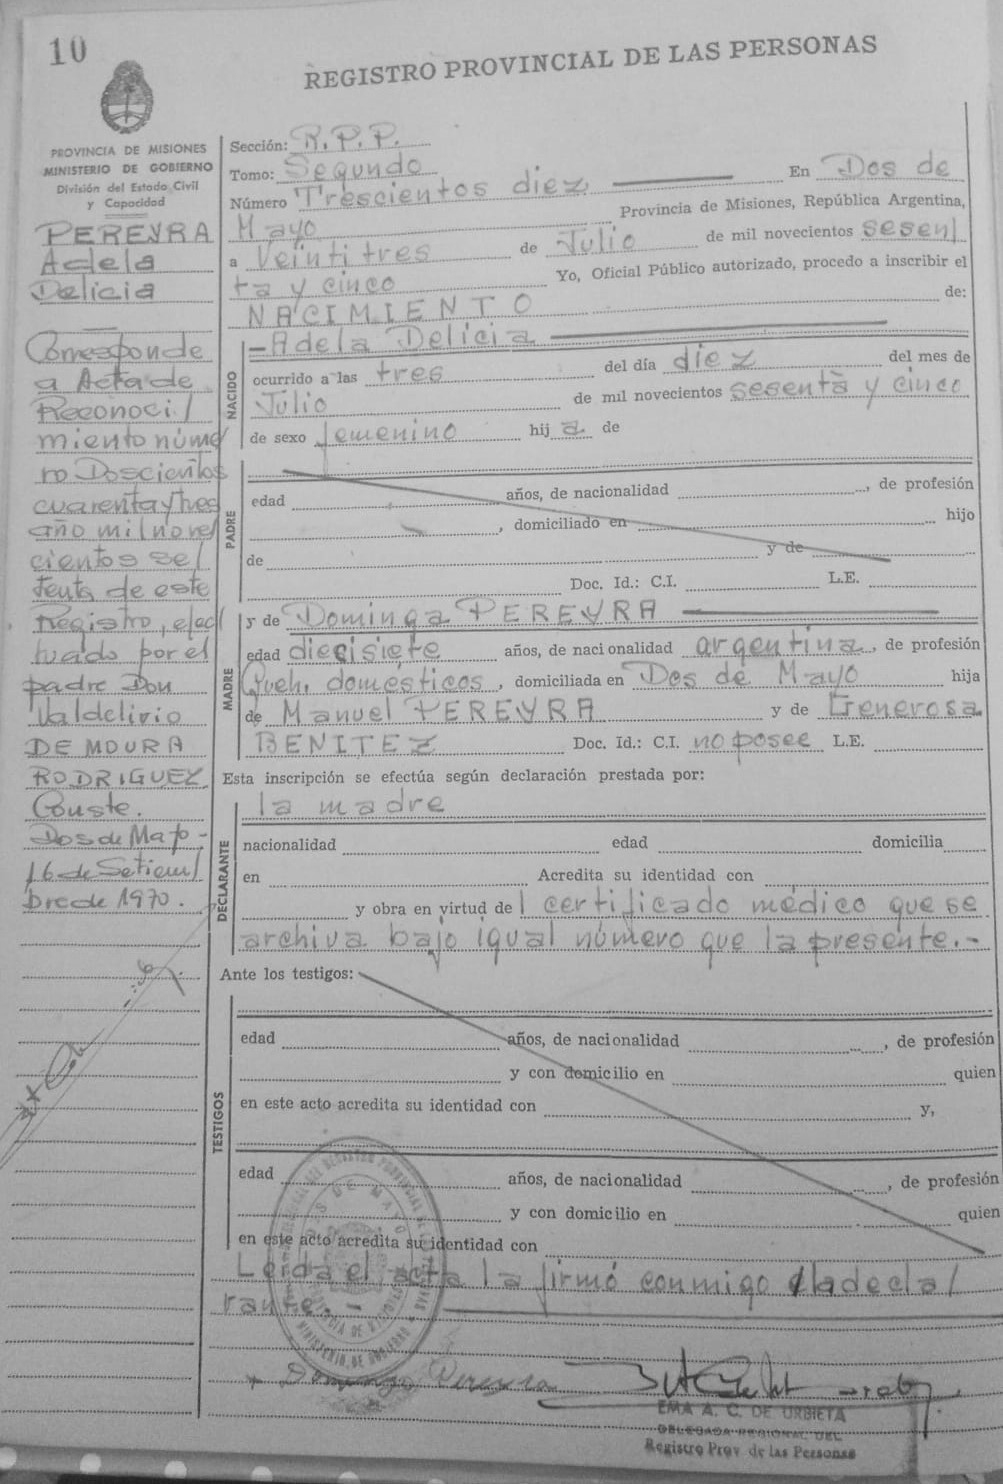 10
REGISTRO PROVINCIAL DE LAS PERSONAS
PROVINCIA DE MISIONES
MINISTERIO DE GOBIERNO
División del Estado Civil
y Capacidad
PEREYRA
Adela
Delicia
Corresponde
a Acta de
Reconoci/
miento núme
ro Doscientos
cuarenta y tres
año mil nove/
cientos se/
tenta de este
Registro, efec/
tuado por el
padre Don
Valdelirio
DE MOURA
RODRIGUEZ
Conste.
Dos de Mayo -
16 de Setiem/
bre de 1970.
Sección: R. P. P.
Tomo: Segundo
Número Trescientos diez En Dos de
Mayo Provincia de Misiones, República Argentina,
a Veintitres de Julio de mil novecientos sesen/
ta y cinco Yo, Oficial Público autorizado, procedo a inscribir el
NACIMIENTO de:
NACIDO
- Adela Delicia
ocurrido a las tres del día diez del mes de
Julio de mil novecientos sesenta y cinco
de sexo femenino hij a de
PADRE
edad años, de nacionalidad , de profesión
, domiciliado en hijo
de y de
Doc. Id.: C.I. L.E.
MADRE
y de Dominga PEREYRA
edad diecisiete años, de nacionalidad argentina, de profesión
Queh. domésticos, domiciliada en Dos de Mayo hija
de Manuel PEREYRA y de Generosa
BENITEZ Doc. Id.: C.I. no posee L.E.
Esta inscripción se efectúa según declaración prestada por:
DECLARANTE
la madre
nacionalidad edad domicilia
en Acredita su identidad con
y obra en virtud del certificado médico que se
archiva bajo igual número que la presente.-
Ante los testigos:
TESTIGOS
edad años, de nacionalidad , de profesión
y con domicilio en quien
en este acto acredita su identidad con y,
edad años, de nacionalidad , de profesión
y con domicilio en quien
en este acto acredita su identidad con
Leída el acta la firmó conmigo la decla/
rante.-
Dominga Pereyra
EMA A. C. DE URBIETA
DELEGADA REGIONAL DEL
Registro Prov. de las Personas